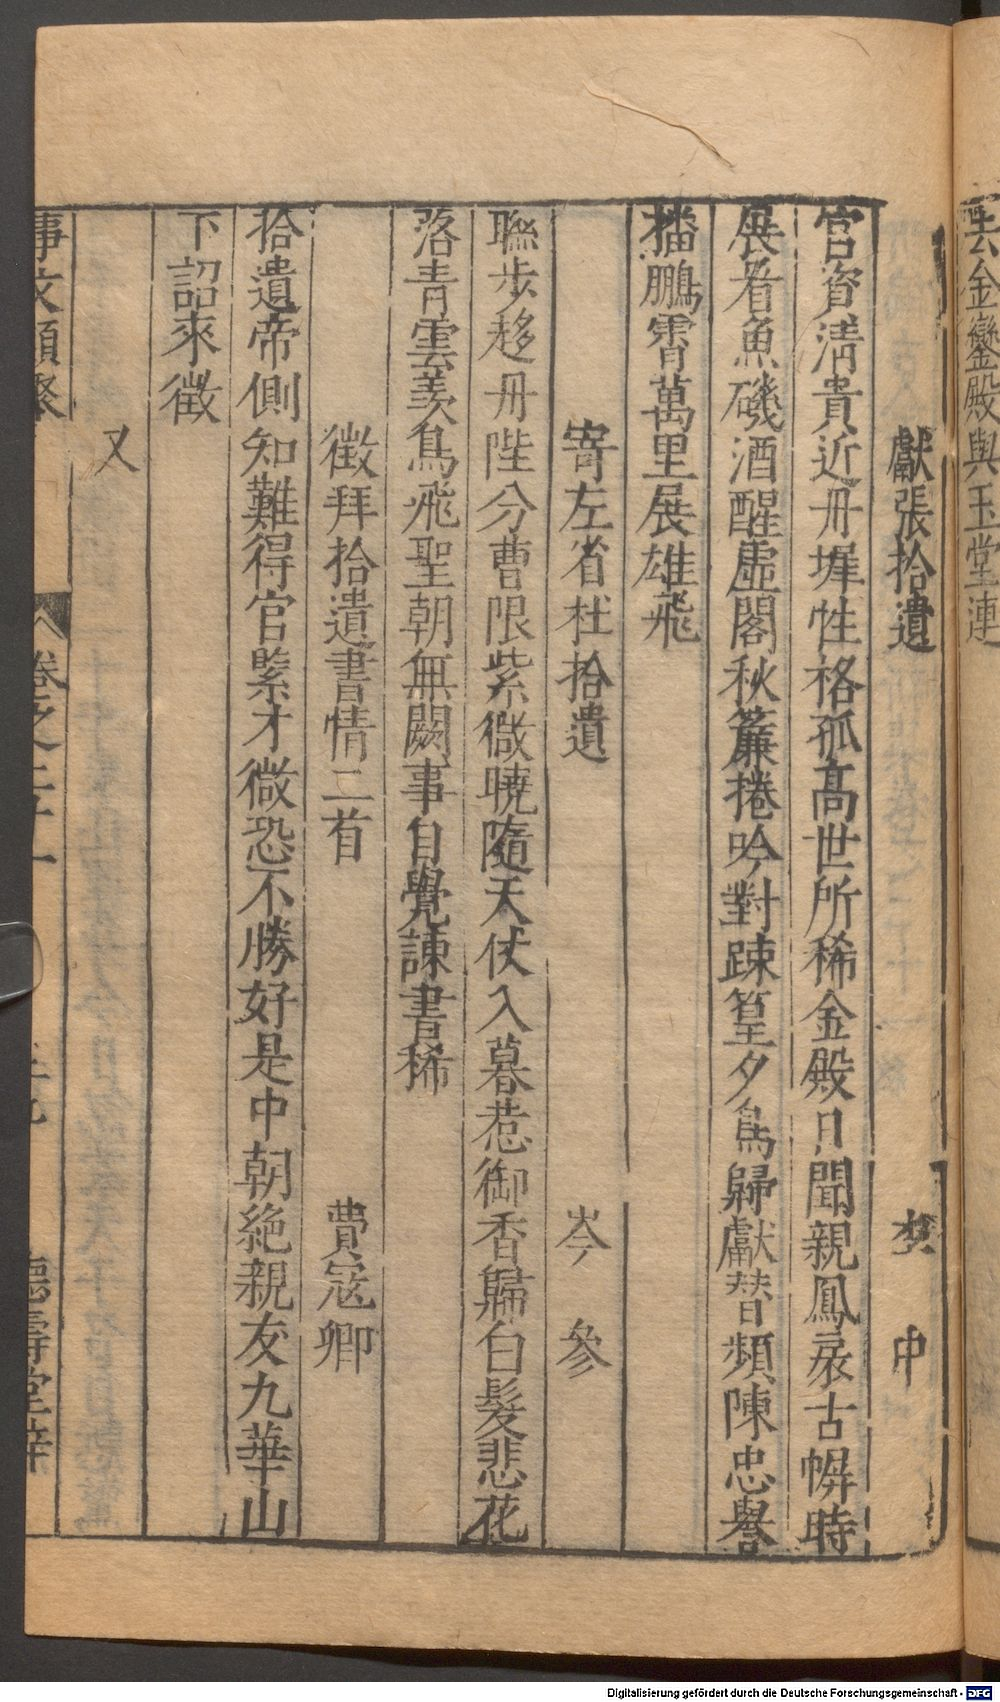 云金鑾殿與玉堂連
獻張拾遺 李中
官資淸貴近丹墀性格孤高世所稀金殿日聞親鳳扆古幈時
展看魚磯酒醒虛閣秋簾捲吟對踈篁夕鳥歸獻替頻陳忠譽
播鵬霄萬里展雄飛
寄左省杜拾遺 岑參
聯步移丹陛分曹限紫微曉隨天仗入暮惹御香歸白髮悲花
落青雲羡鳥飛聖朝無闕事自覺諫書稀
徵拜拾遺書情二首 費冠卿
拾遺帝側知難得官緊才微恐不勝好是中朝絶親友九華山
下詔來徵
又
事文類聚 卷之二十一 德壽堂梓
Digitalisierung gefördert durch die Deutsche Forschungsgemeinschaft - DFG